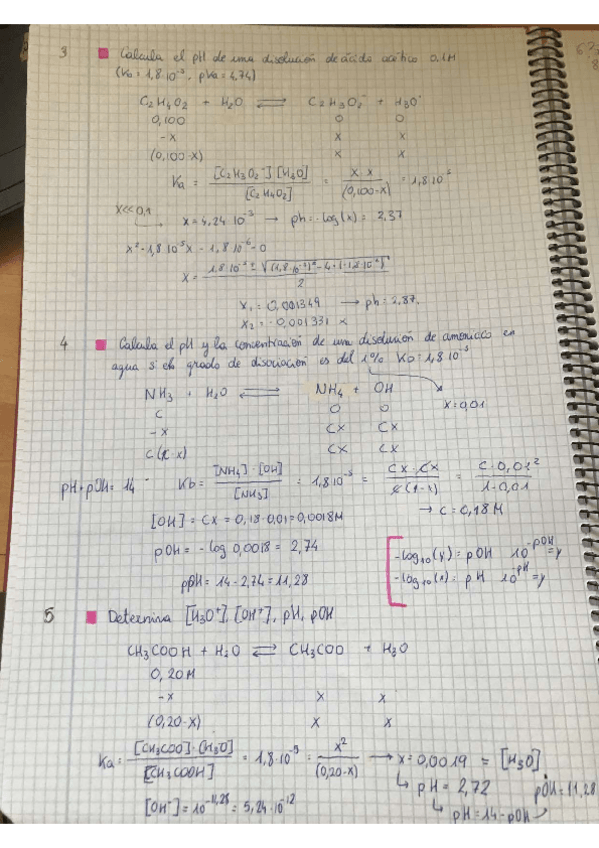 3 Calcula el pH de una disolución de ácido acético 0.1M
(Ka = 1,8·10⁻⁵, pKa = 4,74)
C₂H₄O₂ + H₂O ⇌ C₂H₃O₂⁻ + H₃O⁺
0,100 0 0
-x x x
(0,100-x) x x
Ka = [C₂H₃O₂⁻][H₃O] / [C₂H₄O₂] = x·x / (0,100-x) = 1,8·10⁻⁵
x<<0,1
x = 4,24·10⁻³ → ph = -log(x) = 2,37
x² + 1,8·10⁻⁵x - 1,8·10⁻⁶ = 0
2
x₁ = 0,001349 → ph = 2,87.
x₂ = -0,001331 x
4 Calcula el pH y la concentración de una disolución de amoniaco en
agua si el grado de disociación es del 1% Kb = 1,8·10⁻⁵
NH₃ + H₂O ⇌ NH₄ + OH
x = 0,01
C 0 0
-x Cx Cx
C(1-x) Cx Cx
pH + pOH = 14
Kb = [NH₄]·[OH] / [NH₃] = 1,8·10⁻⁵ = Cx·Cx / C(1-x) = C·0,01² / 1-0,01
→ C = 0,18 M
[OH] = Cx = 0,18·0,01 = 0,0018M
pOH = -log 0,0018 = 2,74
-log₁₀(y) = pOH 10⁻ᵖᴼᴴ = y
pH = 14 - 2,74 = 11,28
-log₁₀(x) = pH 10⁻ᵖᴴ = y
5 Determina [H₃O⁺], [OH⁺], pH, pOH
CH₃COOH + H₂O ⇌ CH₃COO + H₃O
0,20M
-x x x
(0,20-x) x x
Ka = [CH₃COO]·[H₃O] / [CH₃COOH] = 1,8·10⁻⁵ = x² / (0,20-x) → x = 0,0019 = [H₃O]
↳ pH = 2,72 pOH = 11,28
[OH⁻] = 10⁻¹¹,²⁸ = 5,24·10⁻¹²
↳ pH = 14 - pOH